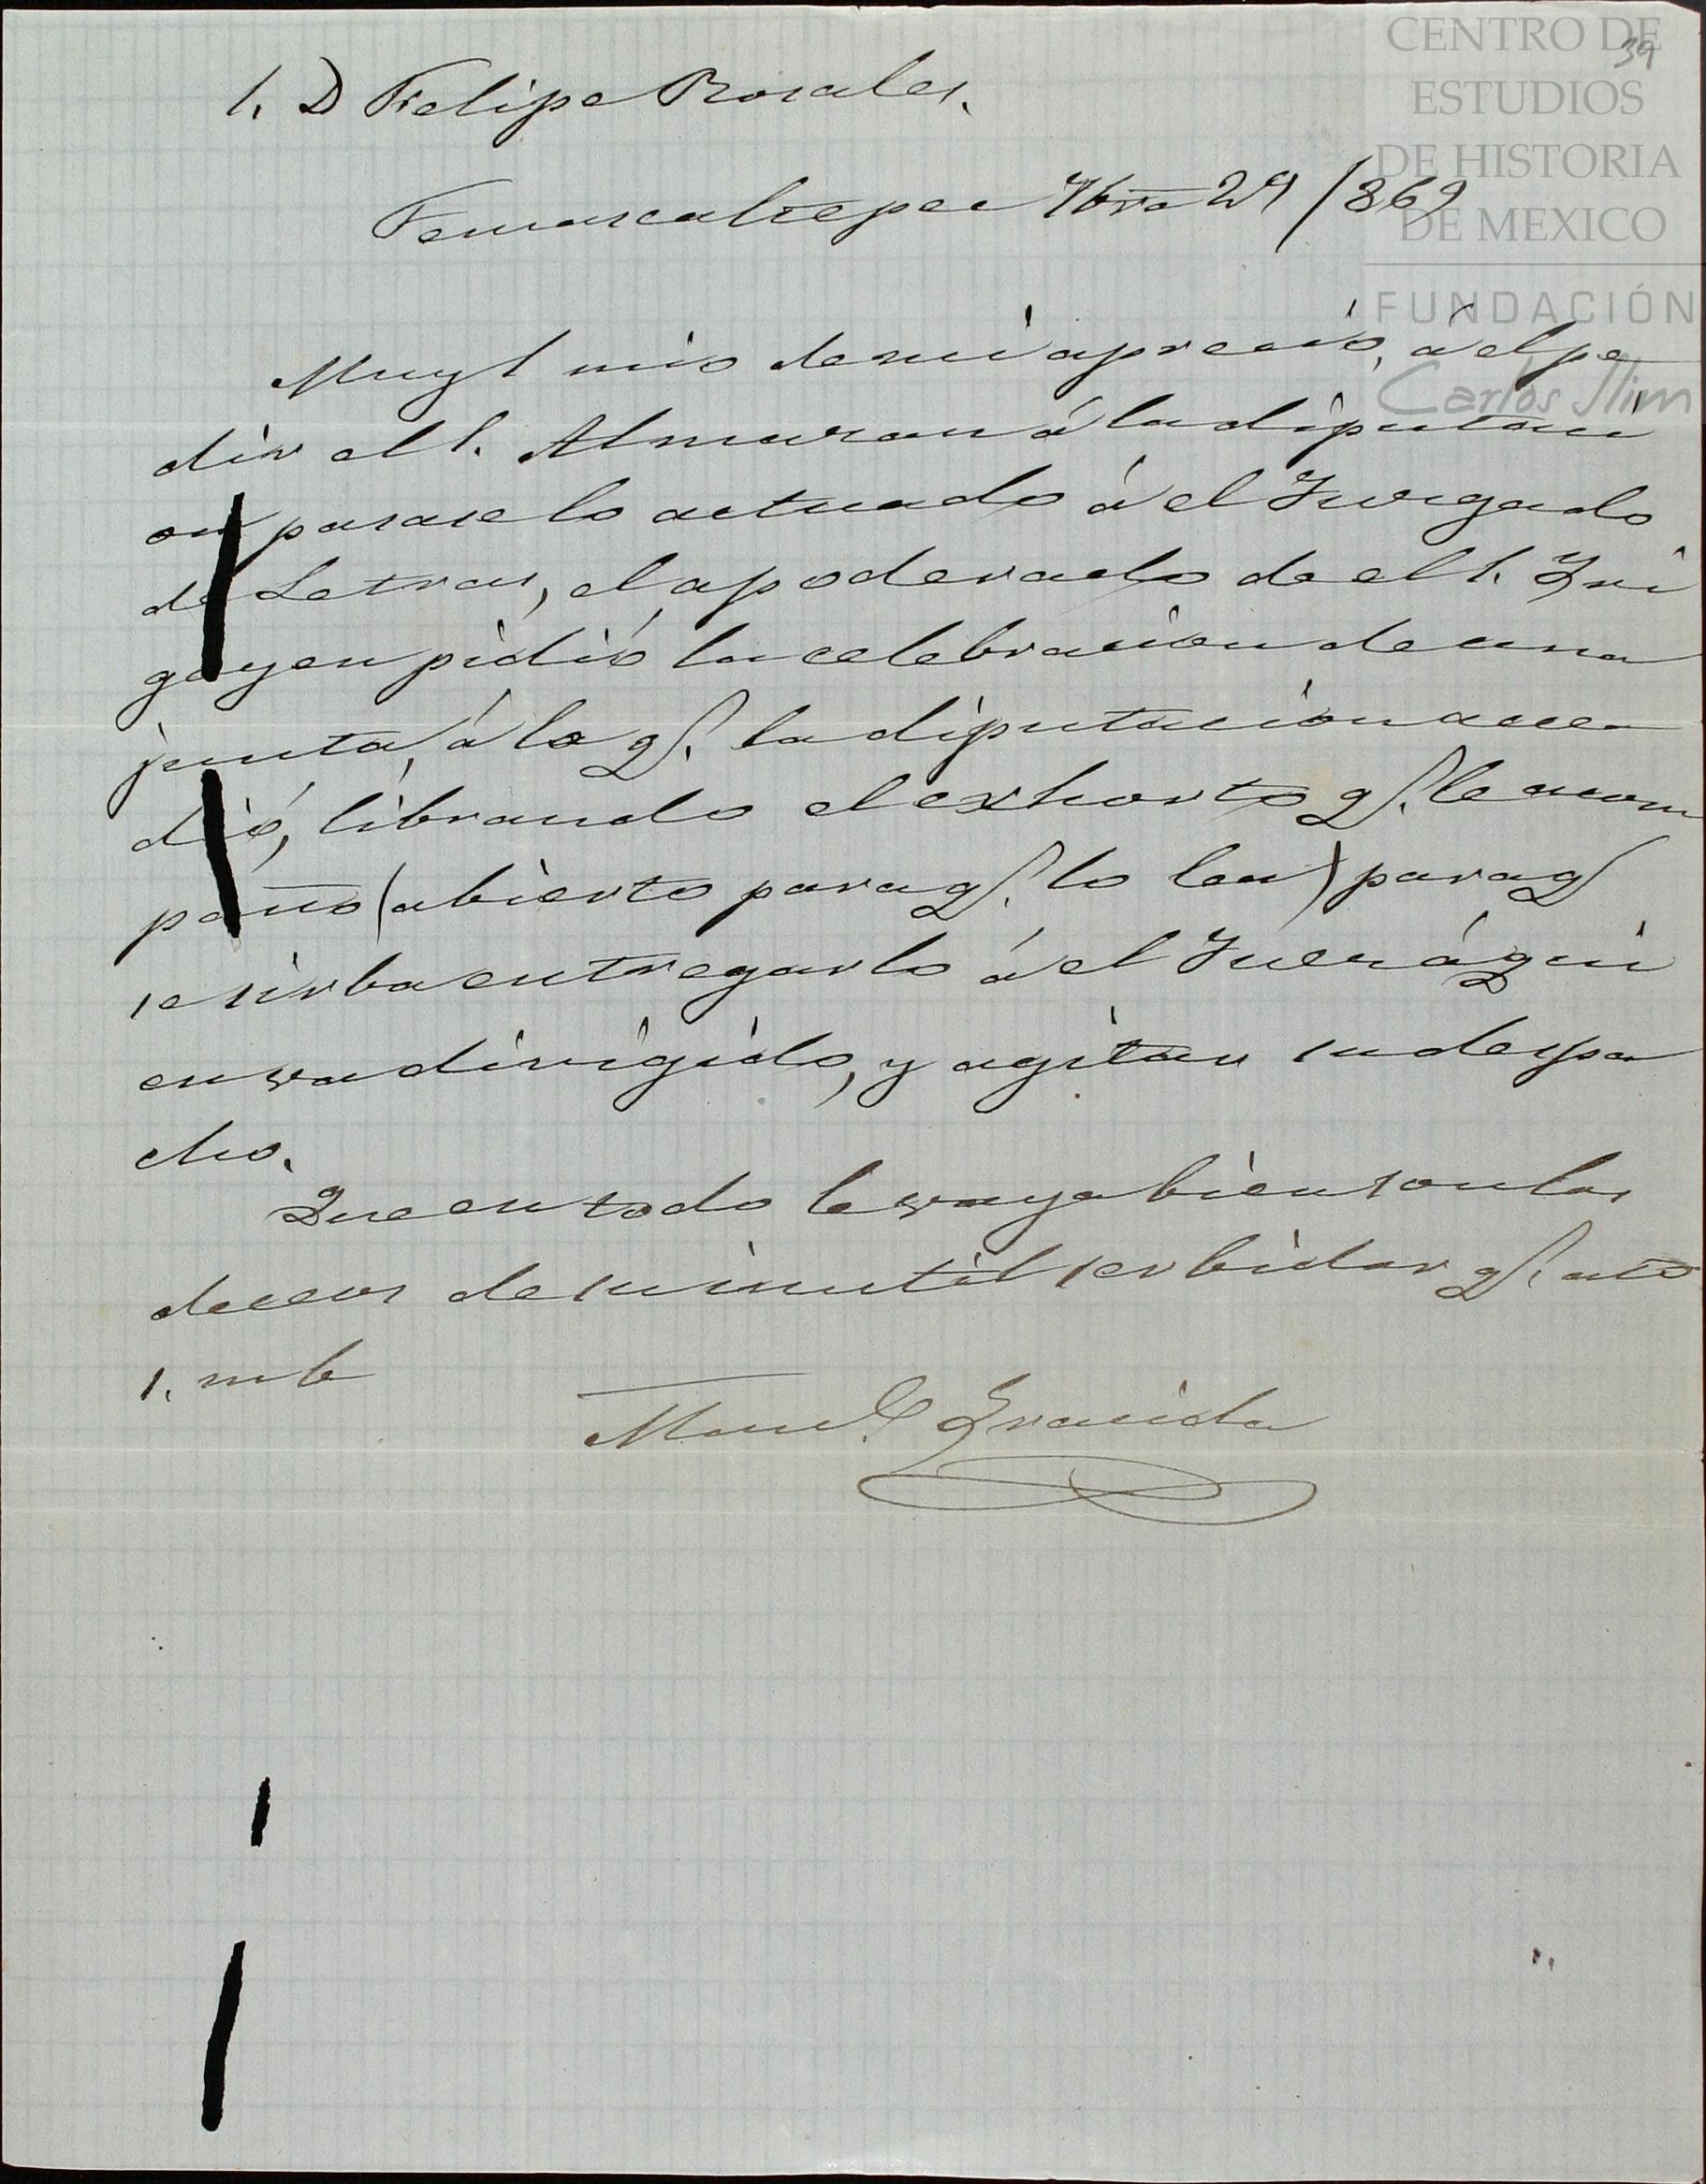 CENTRO DE
ESTUDIOS
DE HISTORIA
DE MEXICO
FUNDACIÓN
Carlos Slim
39
S. D Felipe Rosales.
Temascaltepec 7bre 29/869
Muy S mio de mi aprecio, á el pe
dir el S. Almazan á la diputaci
on pasase lo actuado á el Juzgado
de Letras, el apoderado de el S. Iri
goyen pidió la celebracion de una
junta, á lo q. la diputacion acce
dió, librando el exhorto q. le acom
paño (abierto para q. lo lea) para q
se sirba entregarlo á el Juez á qui
en va dirigido, y agitar su despa
cho.
Que en todo le vaya bien son los
deceos de su inutil serbidor q. ato
s. m b
Man.l Gracida